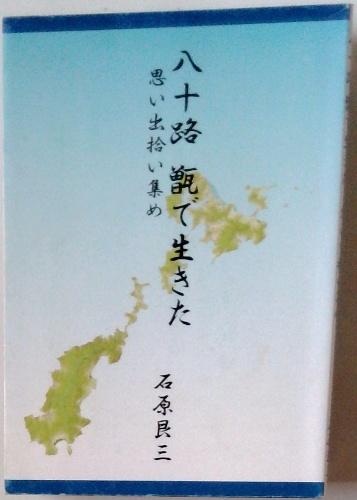 八十路 甑で生きた
思い出拾い集め
石原艮三